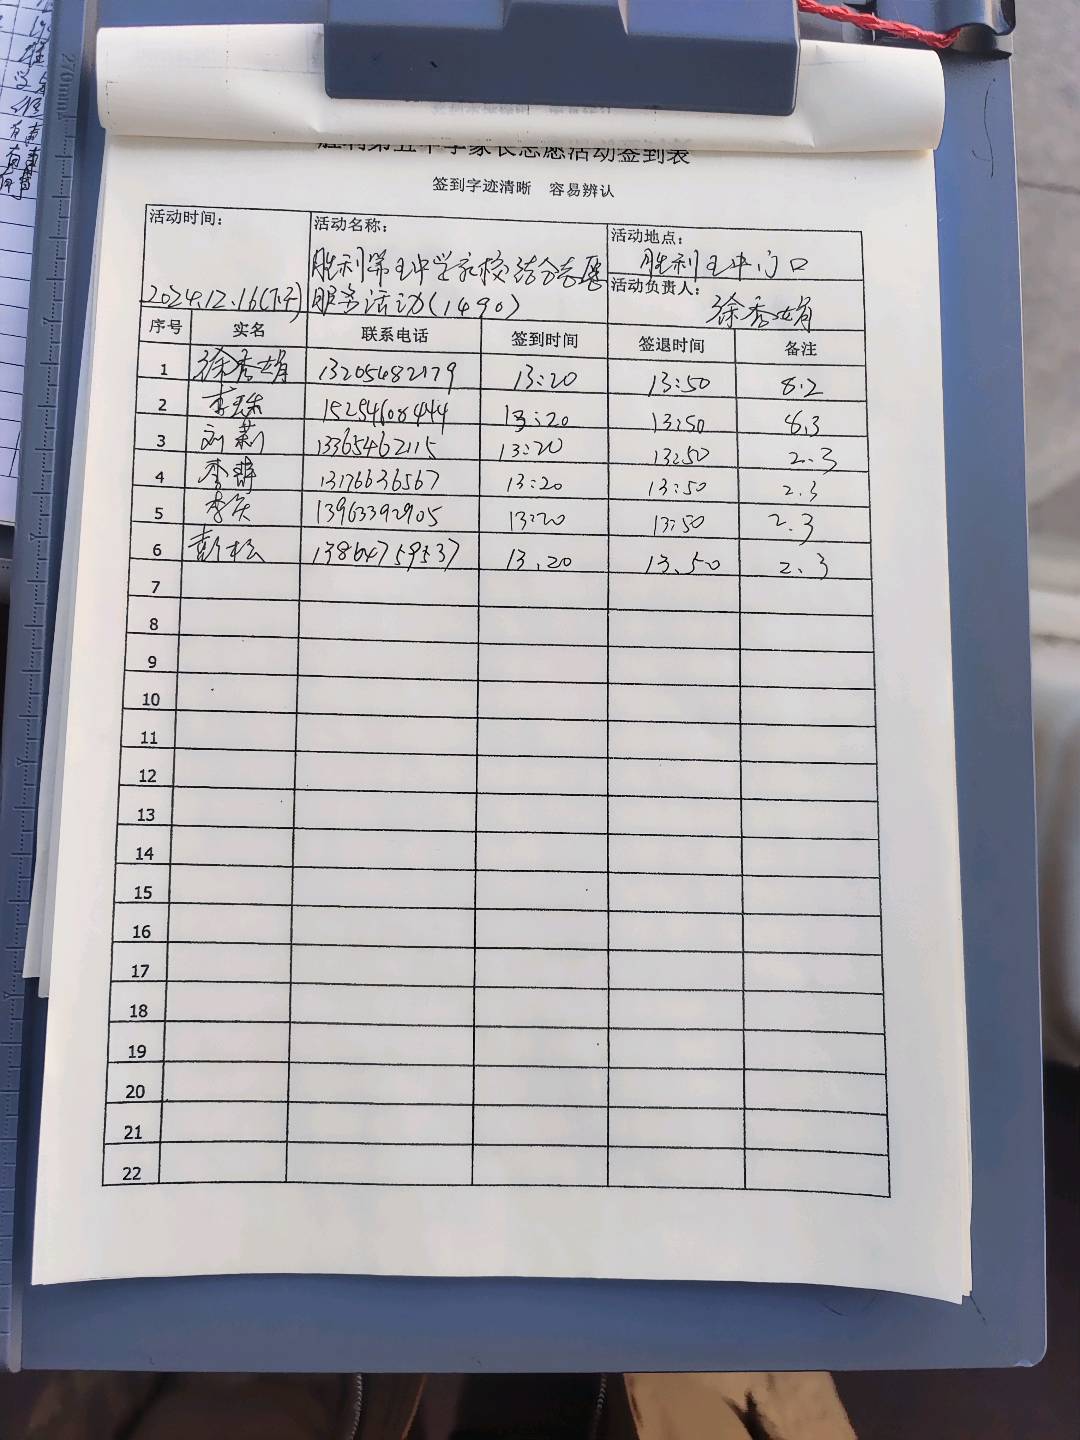 胜利第五中学家长志愿活动签到表
签到字迹清晰 容易辨认
活动时间: 2024.12.16(下午)
活动名称: 胜利第五中学家校结合志愿
服务活动(1490)
活动地点: 胜利五中门口
活动负责人: 徐秀娟
序号 实名 联系电话 签到时间 签退时间 备注
1 徐秀娟 13205482179 13:20 13:50 8.2
2 15254608444 13:20 13:50 8.3
3 刘莉 13365462115 13:20 13:50 2.3
4 李 13176636567 13:20 13:50 2.3
5 李 13963392905 13:20 13:50 2.3
6 彭松 13864759537 13.20 13.50 2.3
7
8
9
10
11
12
13
14
15
16
17
18
19
20
21
22
270mm